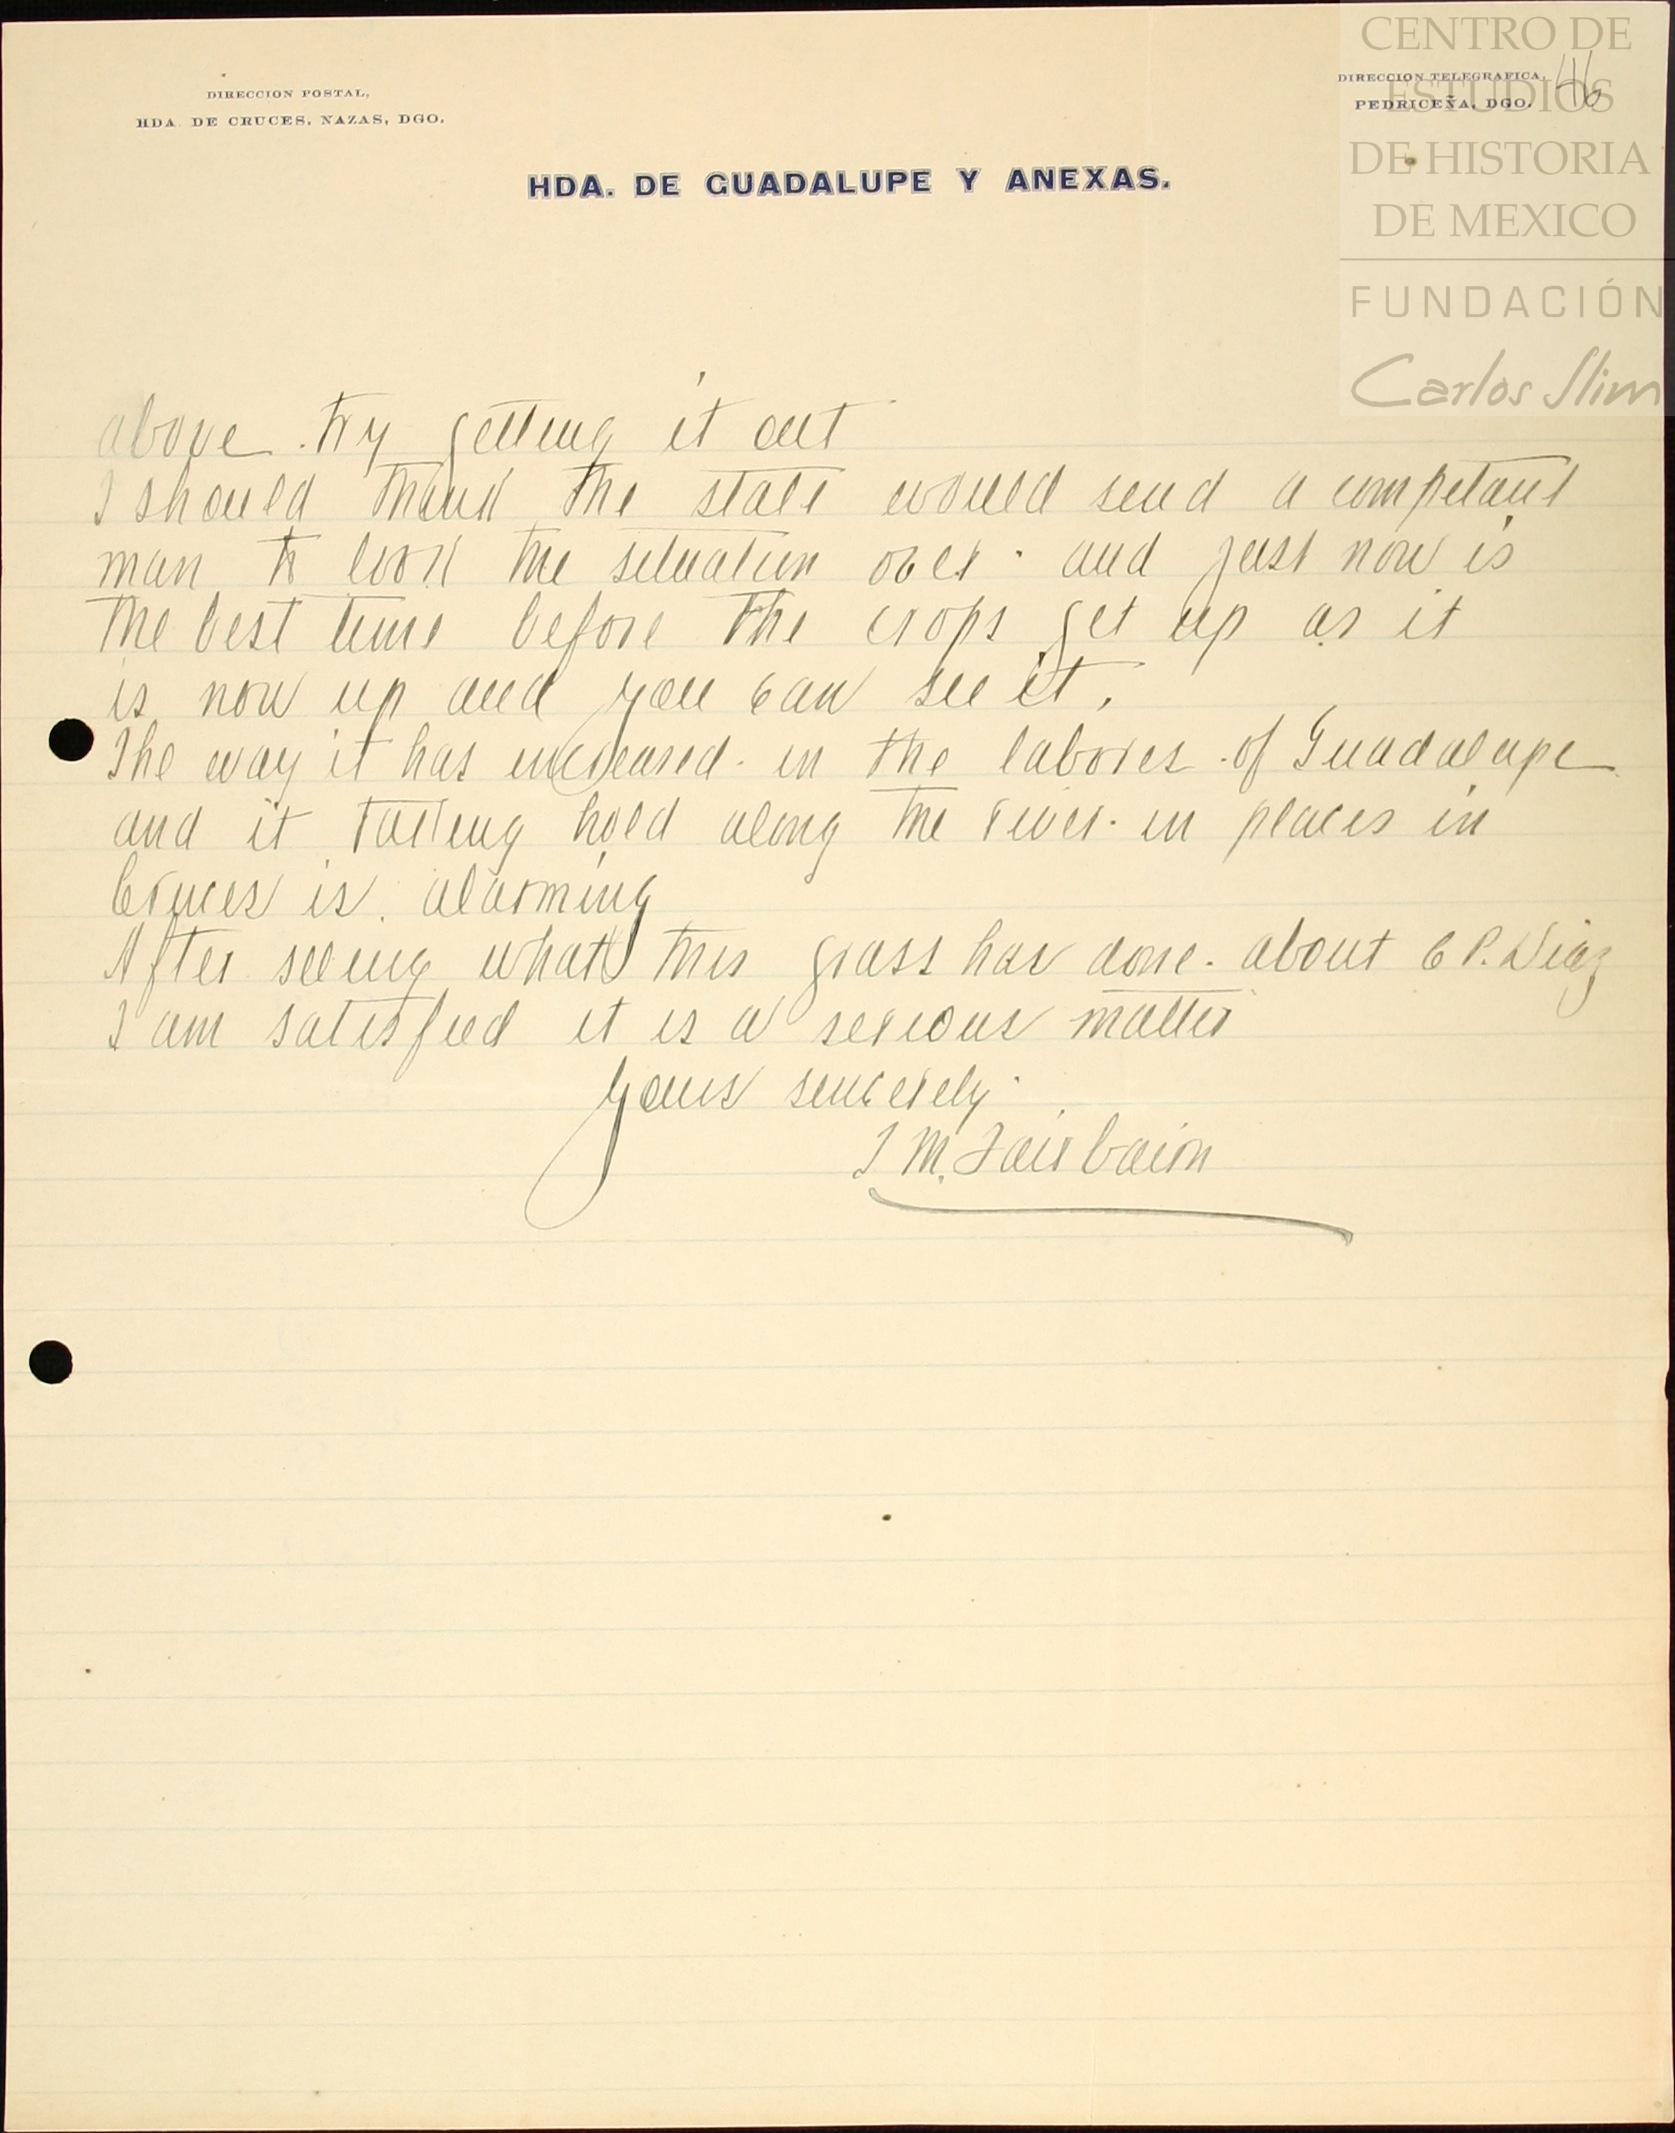 CENTRO DE
ESTUDIOS
DE HISTORIA
DE MEXICO
FUNDACIÓN
Carlos Slim
DIRECCION POSTAL,
HDA. DE CRUCES, NAZAS, DGO.
DIRECCION TELEGRAFICA,
PEDRICEÑA, DGO.
46
HDA. DE GUADALUPE Y ANEXAS.
above. try getting it out
I should think the state would send a competant
man to look the situation over. and just now is
the best time before the crops get up as it
is now up and you can see it.
The way it has increased. in the labores. of Guadalupe
and it taking hold along the river. in places in
Cruces is. alarming
After seeing what this grass has done. about C P. Diaz
I am satisfied it is a serious matter
Yours sincerely.
M. Fairbairn